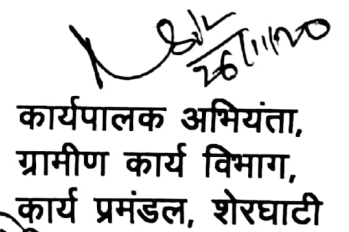 26/11/20
कार्यपालक अभियंता,
ग्रामीण कार्य विभाग,
कार्य प्रमंडल, शेरघाटी